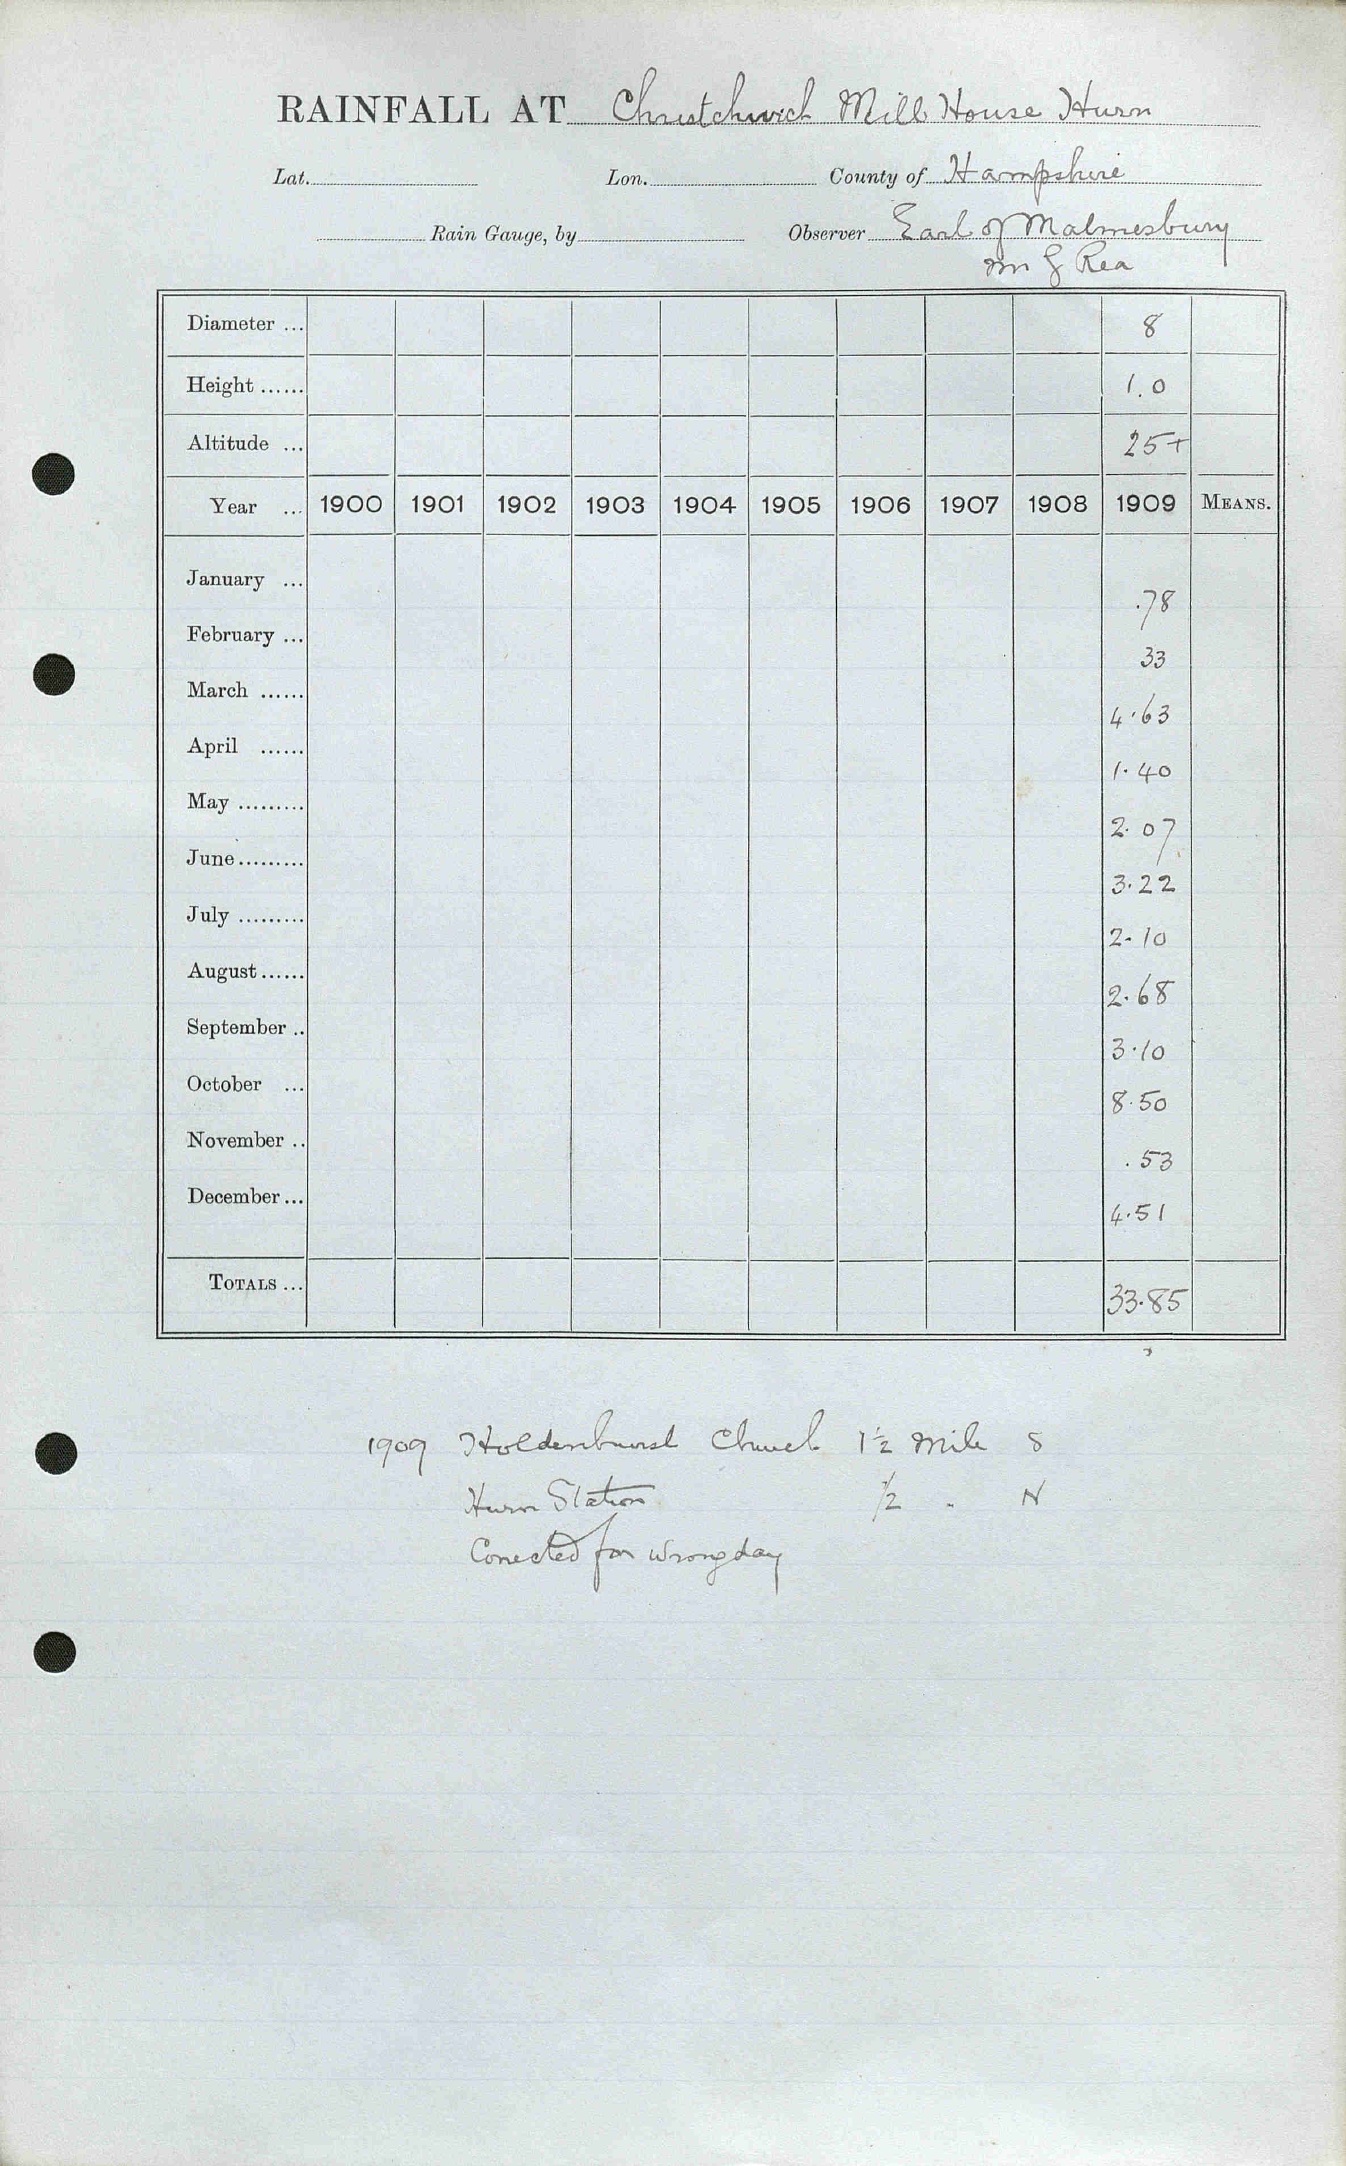 RAINFALL AT Christchurch Mill House Hurn
Lat. Lon. County of Hampshire
Rain Gauge, by Observer Earl of Malmesbury
Mr G Rea
Diameter ... 8
Height ...... 1.0
Altitude ... 25+
Year ... 1900 1901 1902 1903 1904 1905 1906 1907 1908 1909 MEANS.
January ... .78
February ... 33
March ...... 4.63
April ...... 1.40
May ......... 2.07
June ......... 3.22
July ......... 2.10
August ...... 2.68
September .. 3.10
October ... 8.50
November .. .53
December ... 4.51
TOTALS ... 33.85
1909 Holdenhurst Church 1½ Mile S
Hurn Station ½ " N
Corrected for wrong day